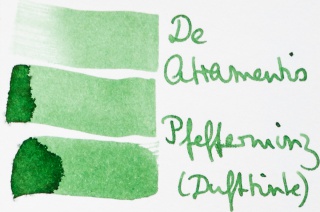 De
Atramentis
Pfefferminz
(Dufttinte)